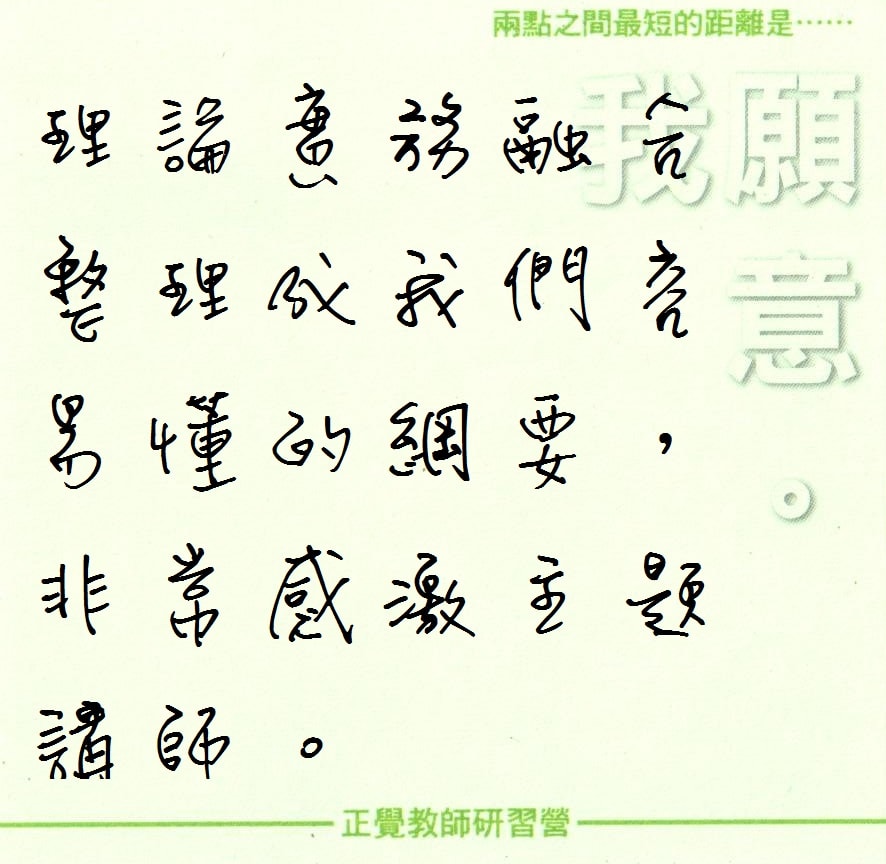 兩點之間最短的距離是……
我願意。
理論實務融合
整理成我們容
易懂的綱要，
非常感激主題
講師。
正覺教師研習營